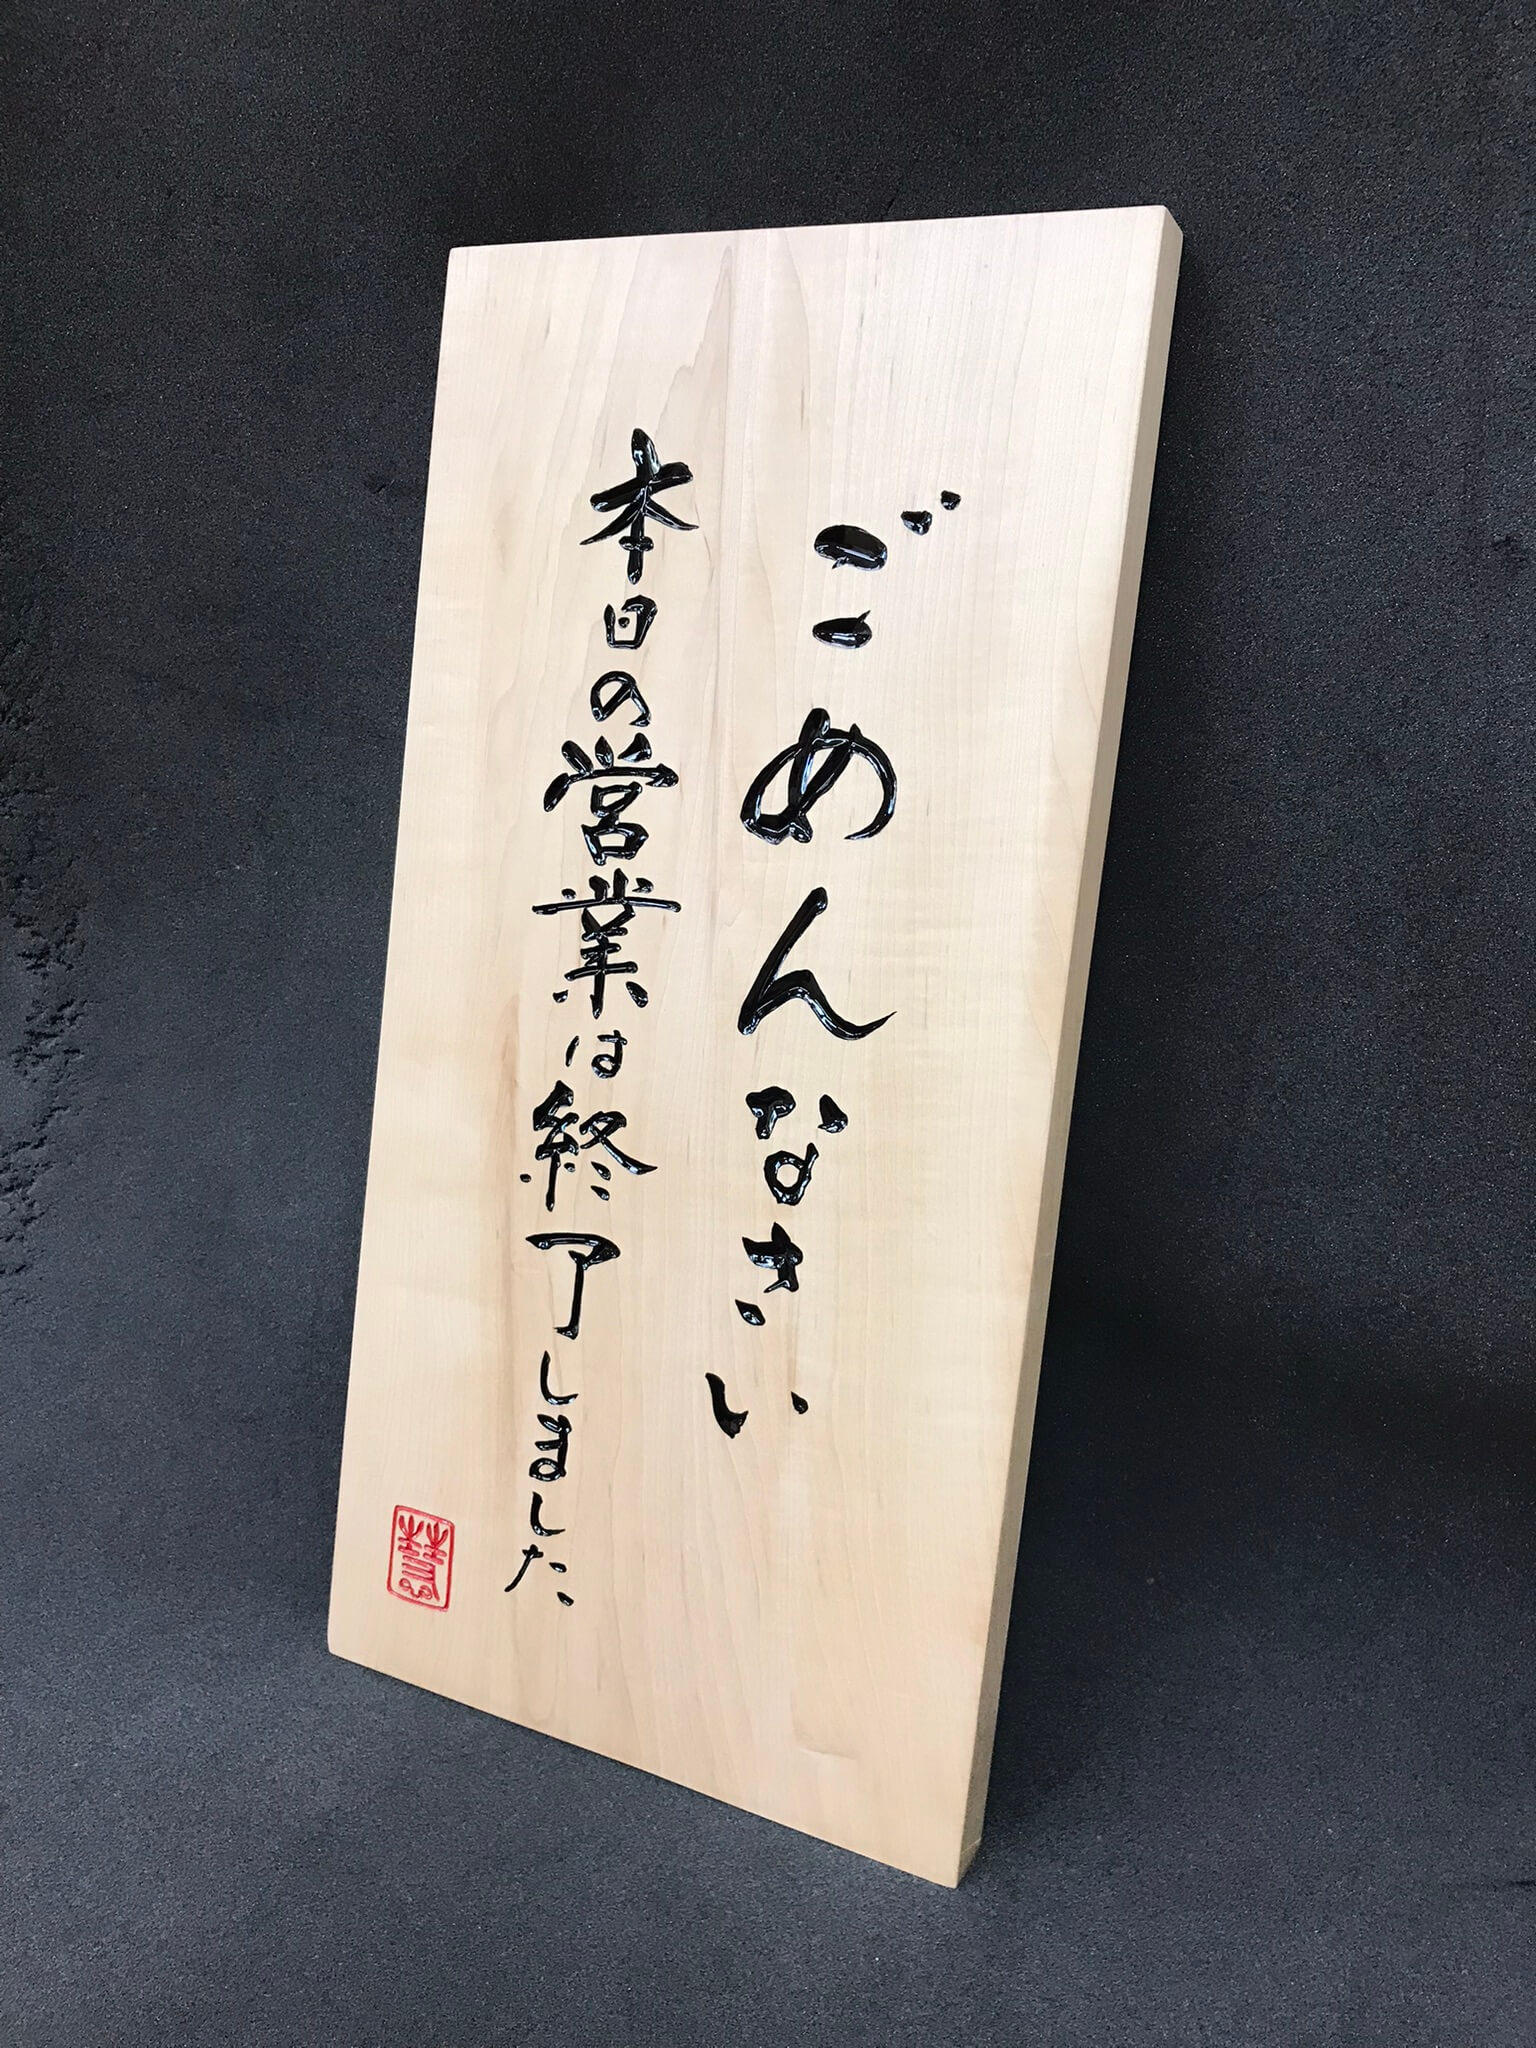 ごめんなさい
本日の営業は終了しました